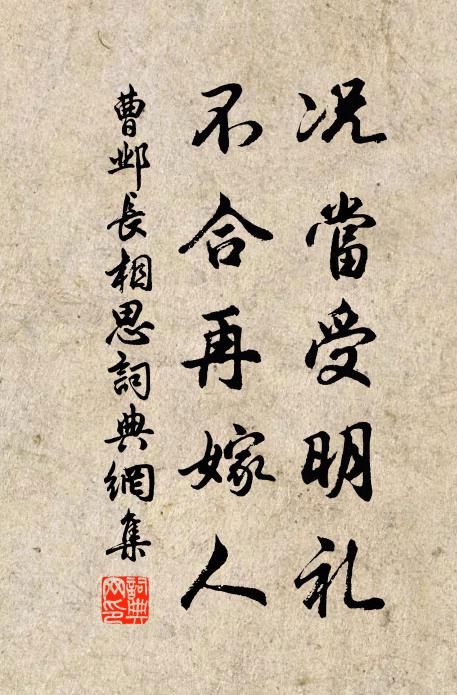 况當受明礼
不合再嫁人
曹邺長相思詞典網集
詞典